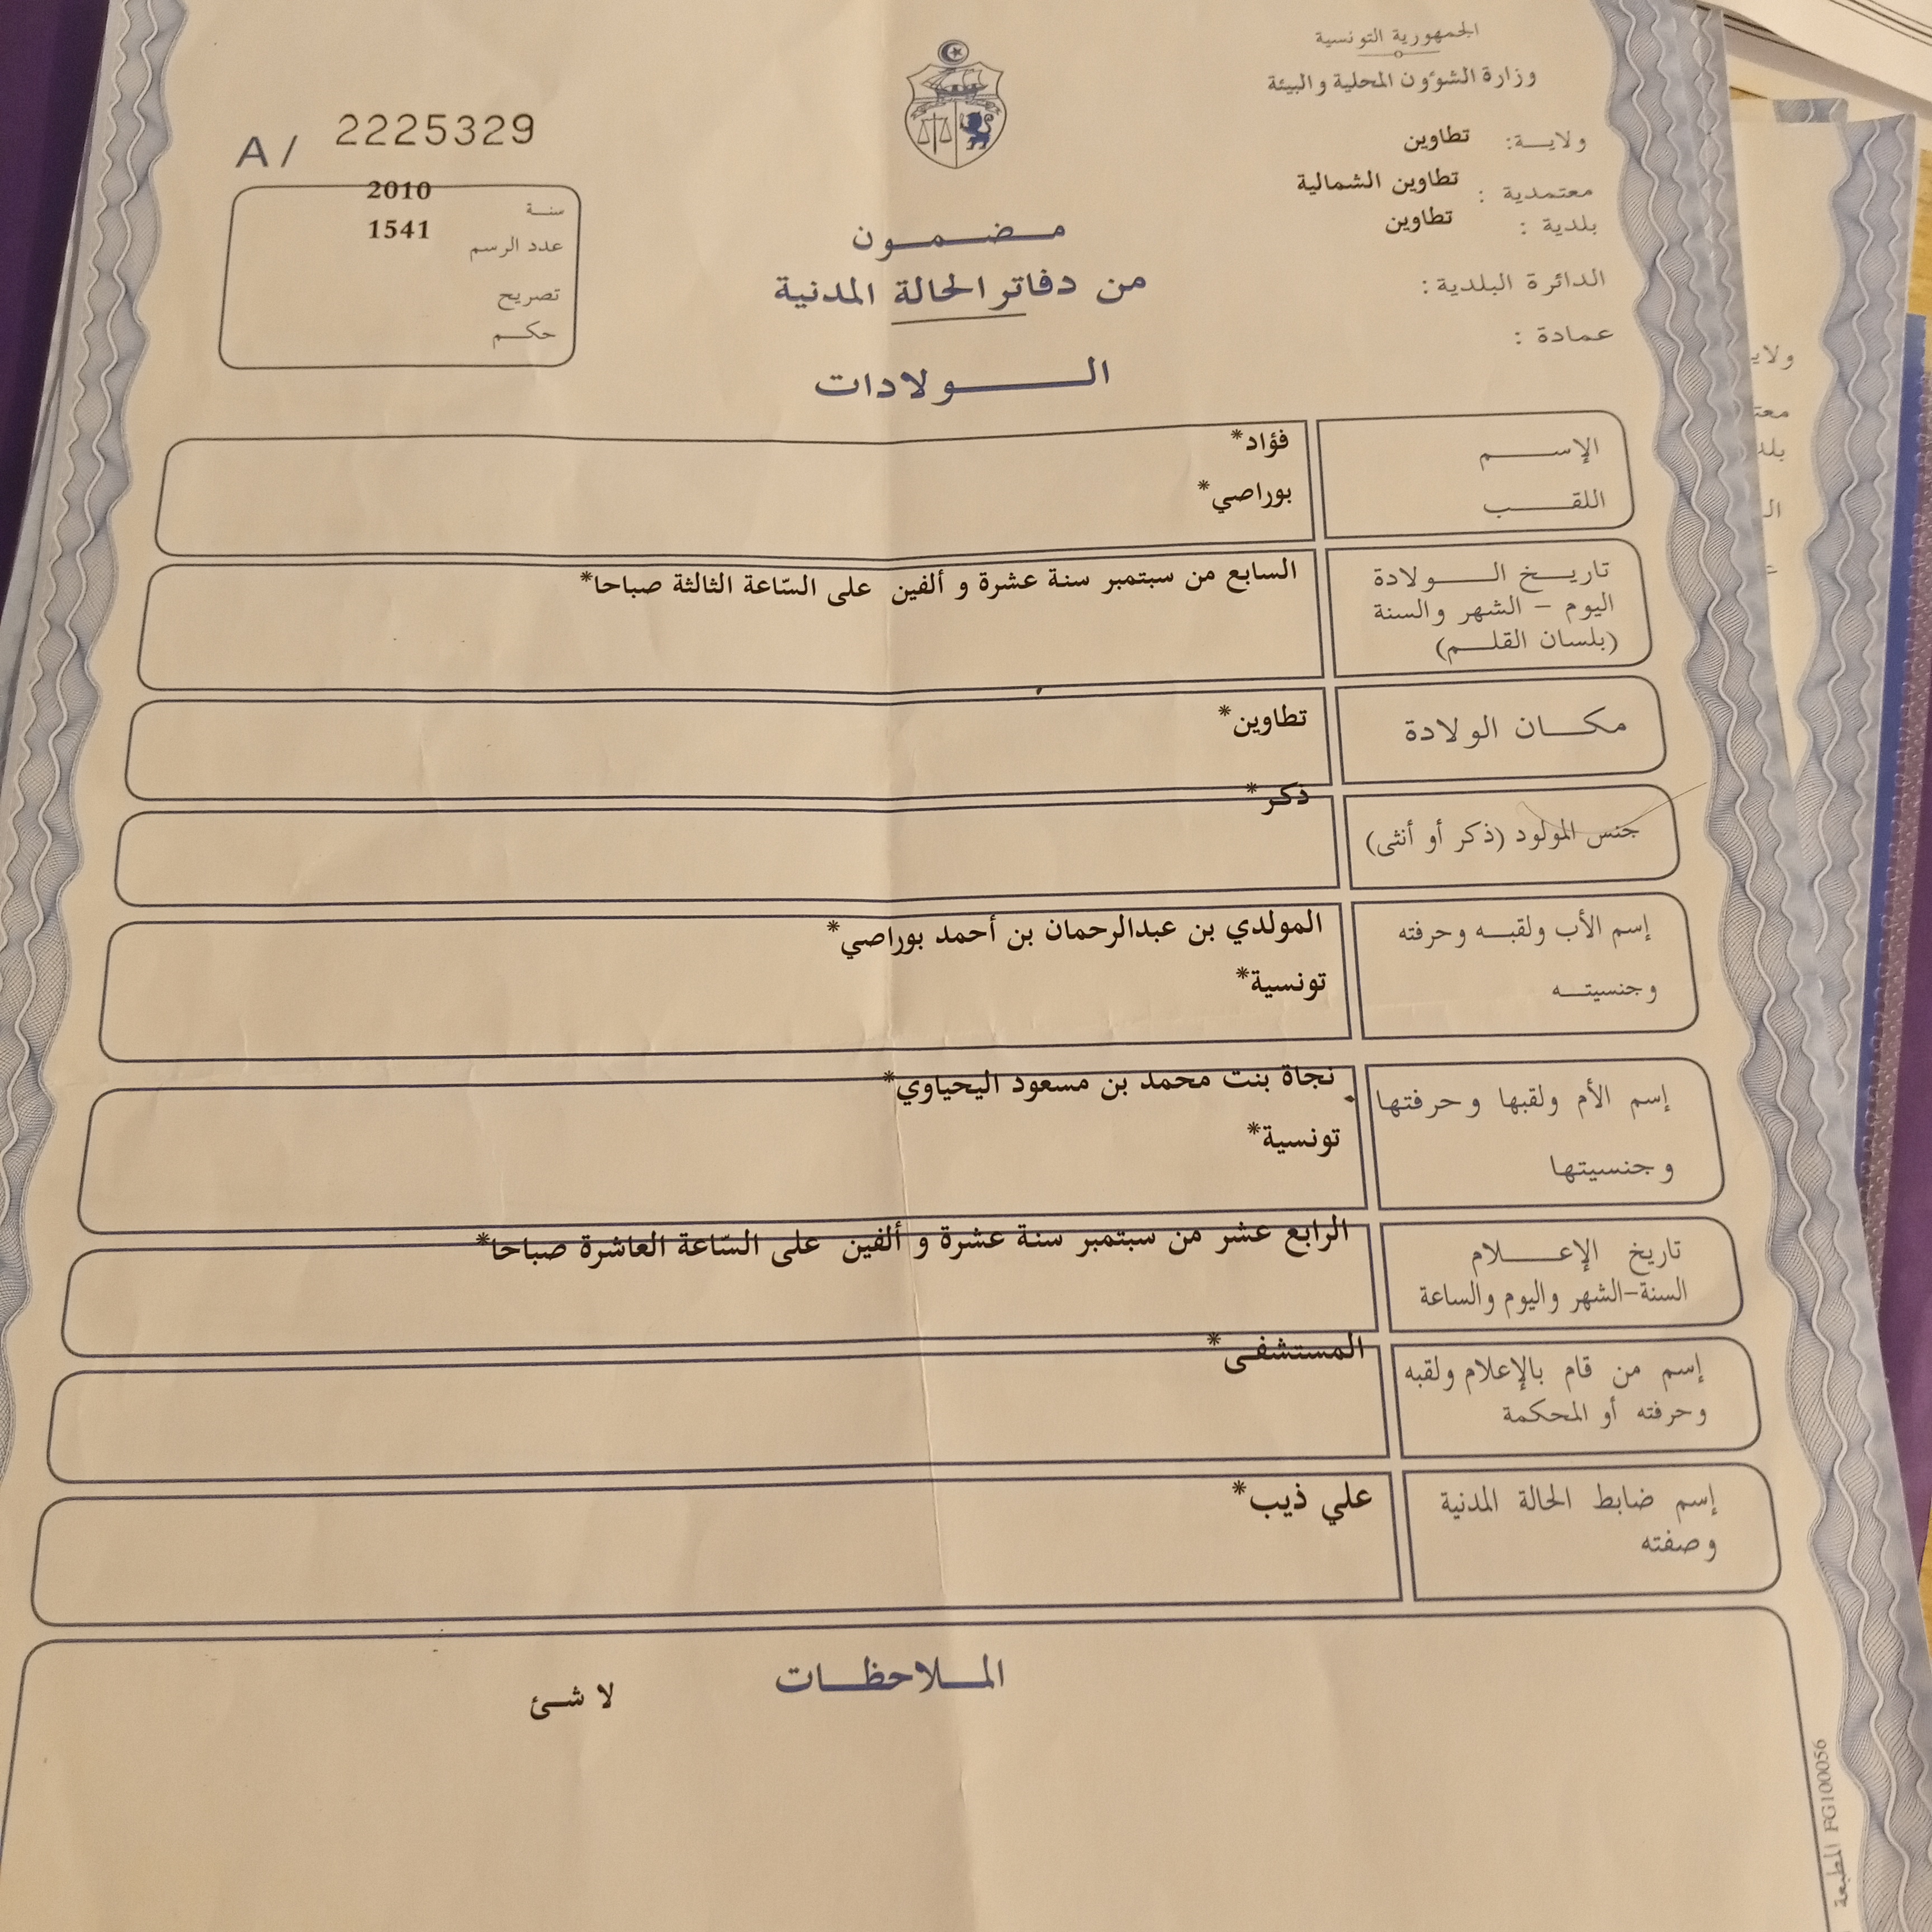 الجمهورية التونسية
وزارة الشؤون المحلية والبيئة
ولاية: تطاوين
معتمدية : تطاوين الشمالية
بلدية : تطاوين
الدائرة البلدية :
عمادة :
A/ 2225329
سنة 2010
عدد الرسم 1541
تصريح
حكم
مضمون
من دفاتر الحالة المدنية
الولادات
الإسم فؤاد*
اللقب بوراصي*
تاريخ الولادة السابع من سبتمبر سنة عشرة و ألفين على السّاعة الثالثة صباحا*
اليوم - الشهر والسنة
(بلسان القلم)
مكان الولادة تطاوين*
جنس المولود (ذكر أو أنثى) ذكر*
إسم الأب ولقبه وحرفته المولدي بن عبدالرحمان بن أحمد بوراصي*
وجنسيته تونسية*
إسم الأم ولقبها وحرفتها نجاة بنت محمد بن مسعود اليحياوي*
وجنسيتها تونسية*
تاريخ الإعلام الرابع عشر من سبتمبر سنة عشرة و ألفين على السّاعة العاشرة صباحا*
السنة-الشهر واليوم والساعة
إسم من قام بالإعلام ولقبه المستشفى*
وحرفته أو المحكمة
إسم ضابط الحالة المدنية علي ذيب*
وصفته
الملاحظات
لا شئ
المطبعة FG100056
ولاي
معت
بلد
ال